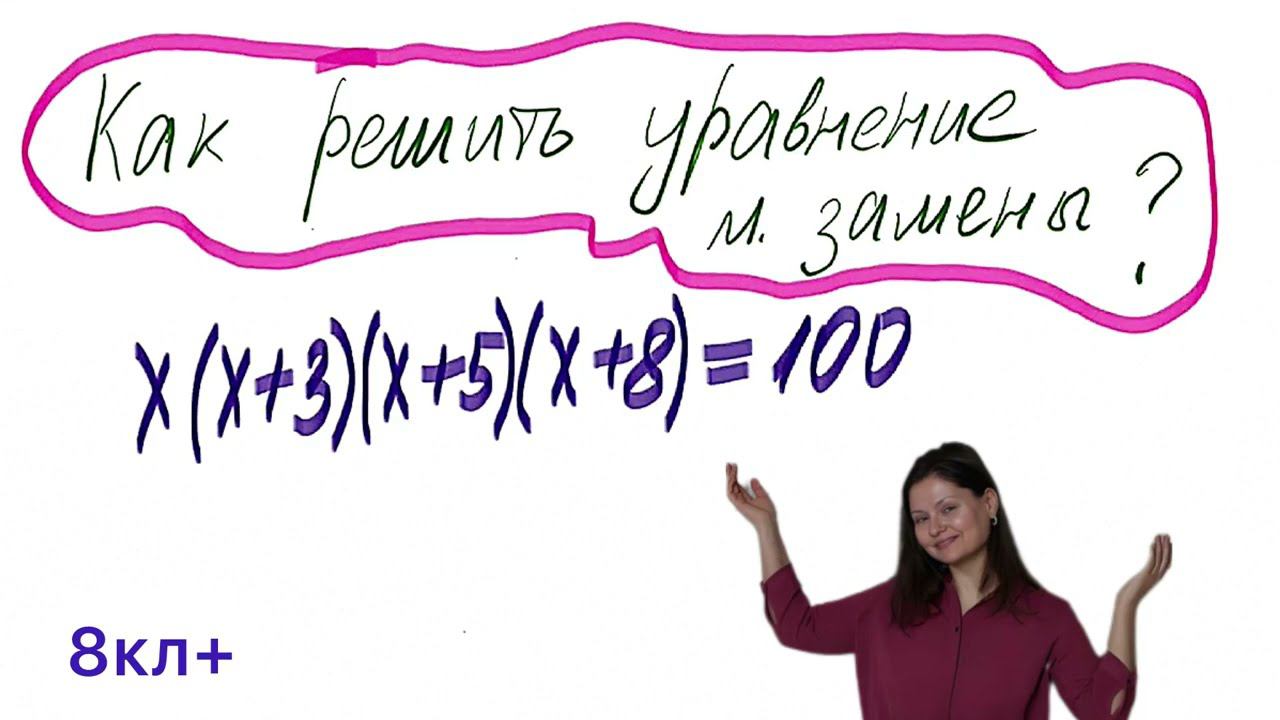 Как решить уравнение
м. замены?
x(x+3)(x+5)(x+8)=100
8кл+